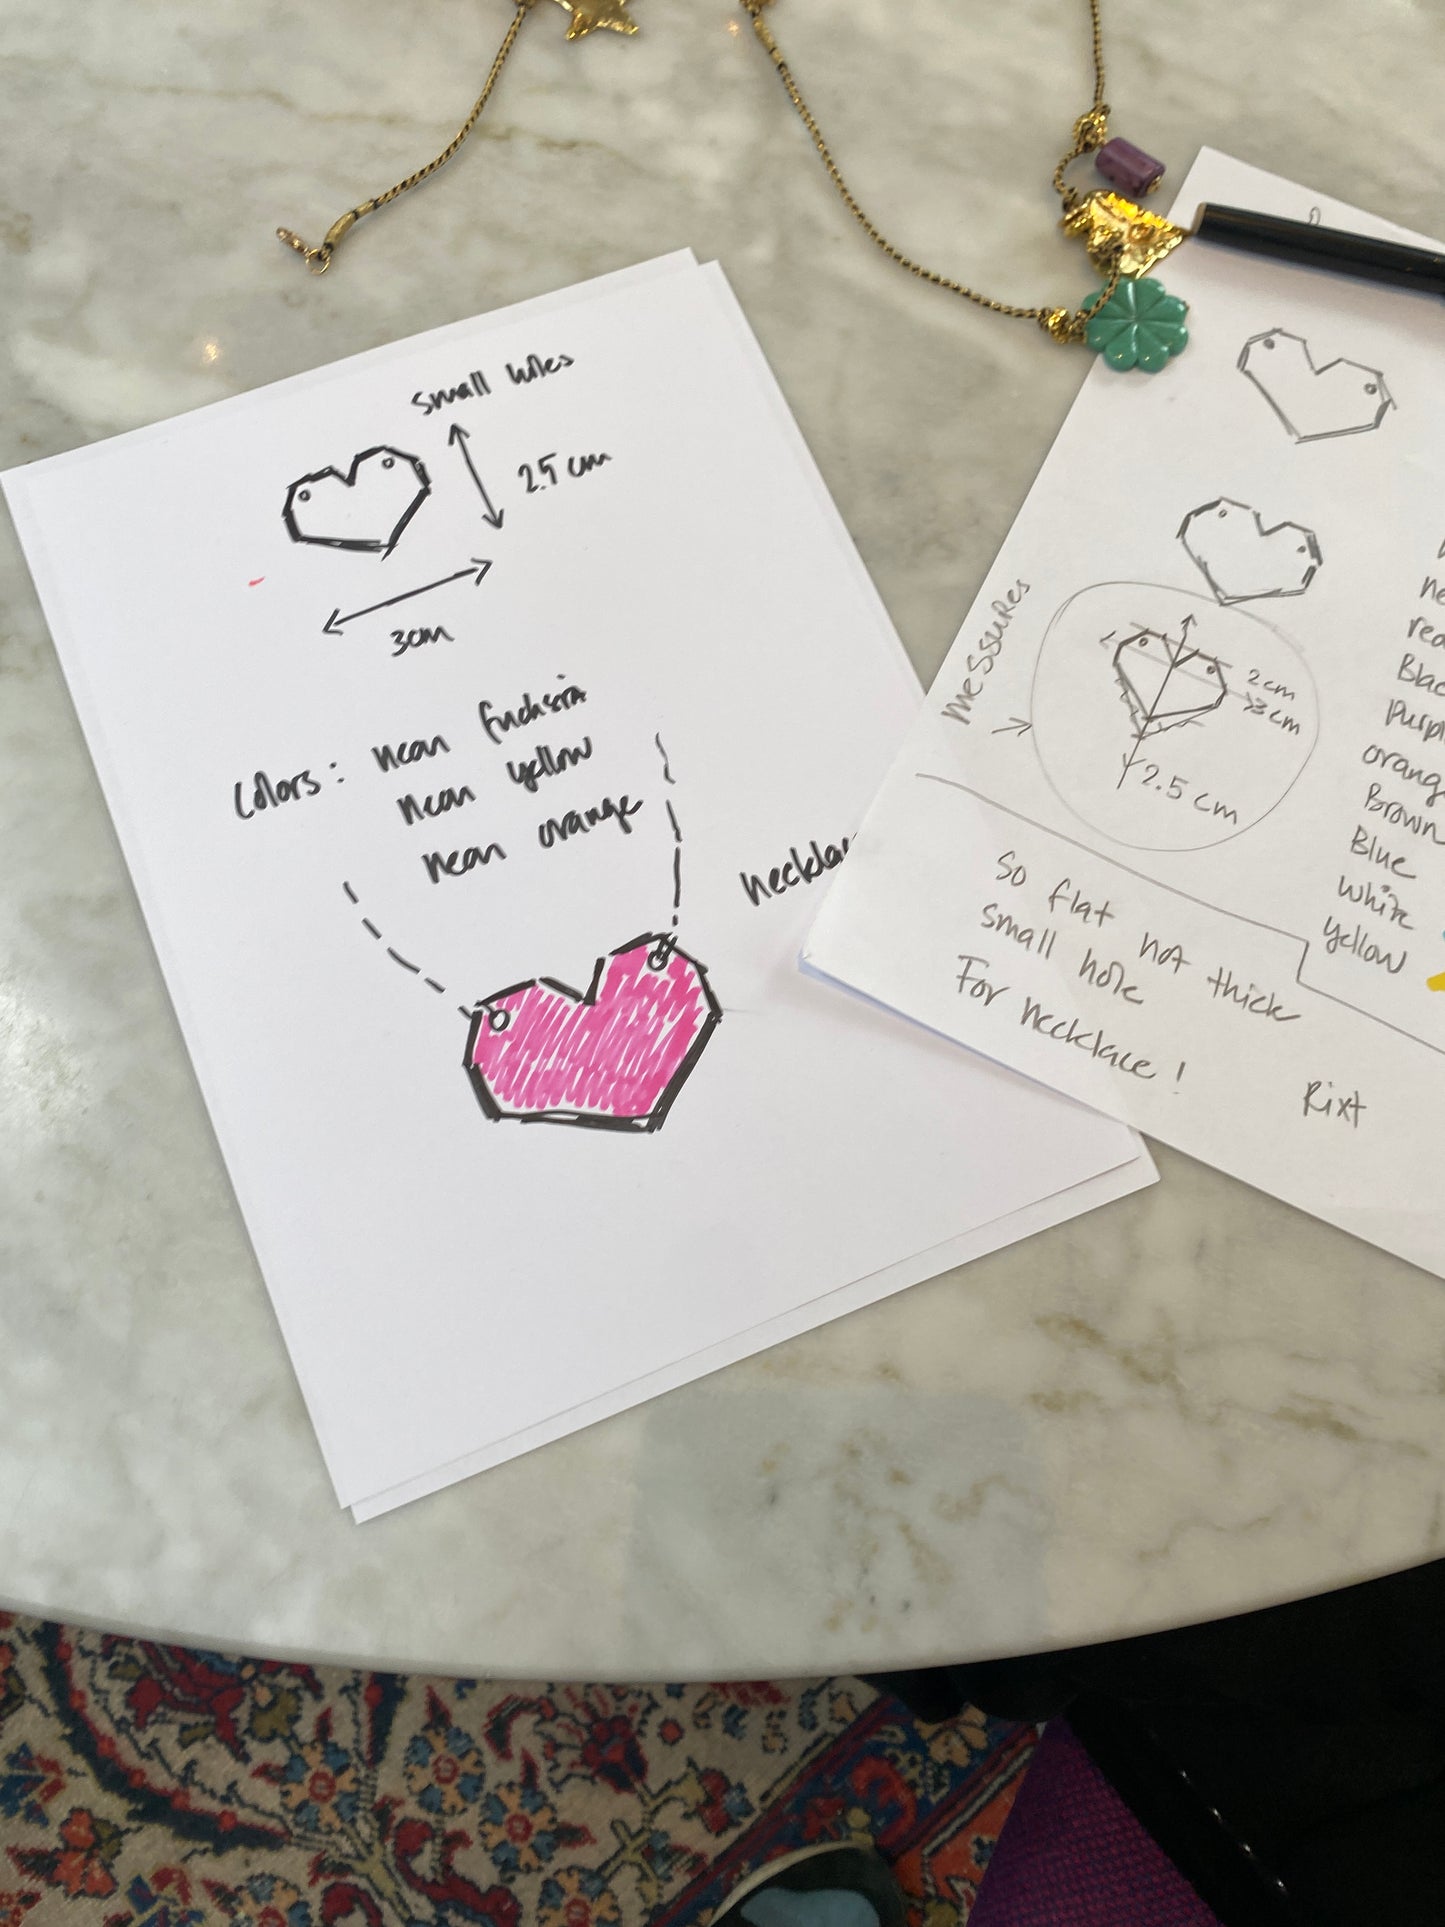 small holes
2.5 cm
3cm
colors: neon fuchsia
neon yellow
neon orange
messures
2cm
3cm
2.5 cm
So flat not thick
small hole
For necklace!
Rixt
Blue
white
yellow